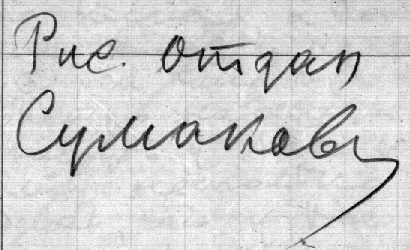 Рис. отдан
Сумакову